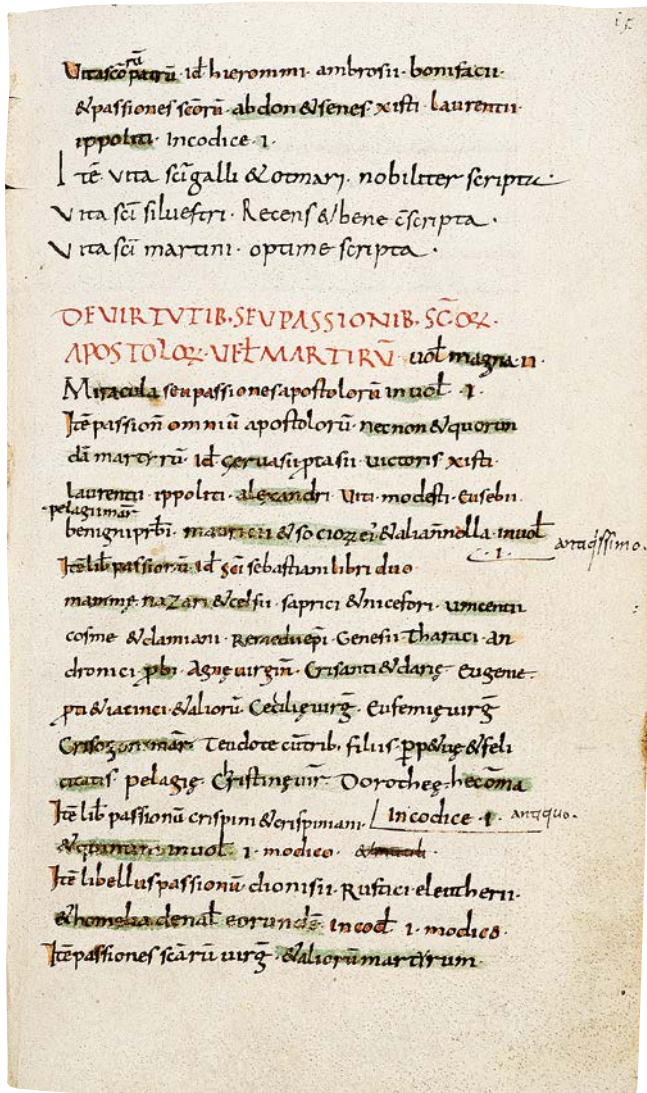 15
Vitascōrū patrū · id hieronimi · ambrosii · bonifacii ·
& passiones scōrū · abdon & senes xisti · laurentii ·
ippoliti · Incodice · i ·
Itē vita scī galli & otmari · nobiliter scripta ·
Vita scī siluestri · Recens & bene cscripta ·
Vita scī martini · optime scripta ·
DE VIRTVTIB · SEV PASSIONIB · SC̄OꝜ ·
APOSTOLOꝜ · VEƚ MARTIRŪ · uoƚ magna ii ·
Miracula seu passiones apostolorū in uoƚ · i ·
Itē passion̄ omniū apostolorū · necnon & quorun
dā martyrū · id geruasii ꝓtasii · uictoris xisti ·
laurentii · ippoliti · alexandri · Viti · modesti · Eusebii ·
· pelagii mar̄
benigni prb̄i · mauricii & socioꝝ ei' & alia n̄nolla · in uoƚ · i · antiq̇ssimo ·
Itē lib̄ passionū · id scī sebastiani libri duo
mammę · nazari & celsii · saprici & nicefori · uincentii
cosme & damiani · Remedii ep̄i · Genesii Tharaci · an
dronici ꝓbi · Agnę uirgin̄ · Crisanti & darię · Eugene ·
ꝓti & iacinci · & aliorū · Cecilię uirḡ · Eufemię uirḡ
Crisogoni mar̄ · Teudote cū trib; filiis · ꝑp&uę & feli
citatis · pelagię · Cristinę uir̄ · Dorotheę · hec om̄a
In codice · i · antiquo ·
Itē lib̄ passionū crispini & crispiniani ·
& quintini in uoƚ · i · modico ·
Itē libellus passionū dionisii · Rustici eleutherii ·
& homelia de naƚ eorundē · in cođ · i · modico ·
Itē passiones scārū uirḡ · & aliorū martyrum ·